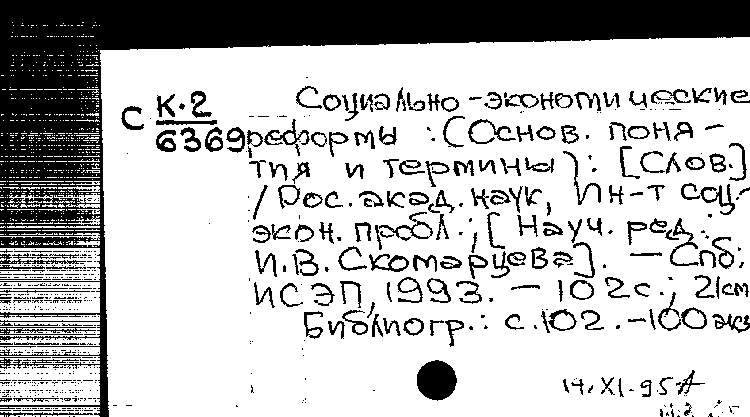 С К.2 Социально-экономические
6369 реформы : (Основ. поня-
тия и термины): [Слов.]
/ Рос. акад. наук, Ин-т соц.-
экон. пробл.; [Науч. ред.:
И.В. Скомарцева]. — Спб:
ИСЭП, 1993. — 102с.; 21см
Библиогр.: с.102. -100 экз
14.XI.95